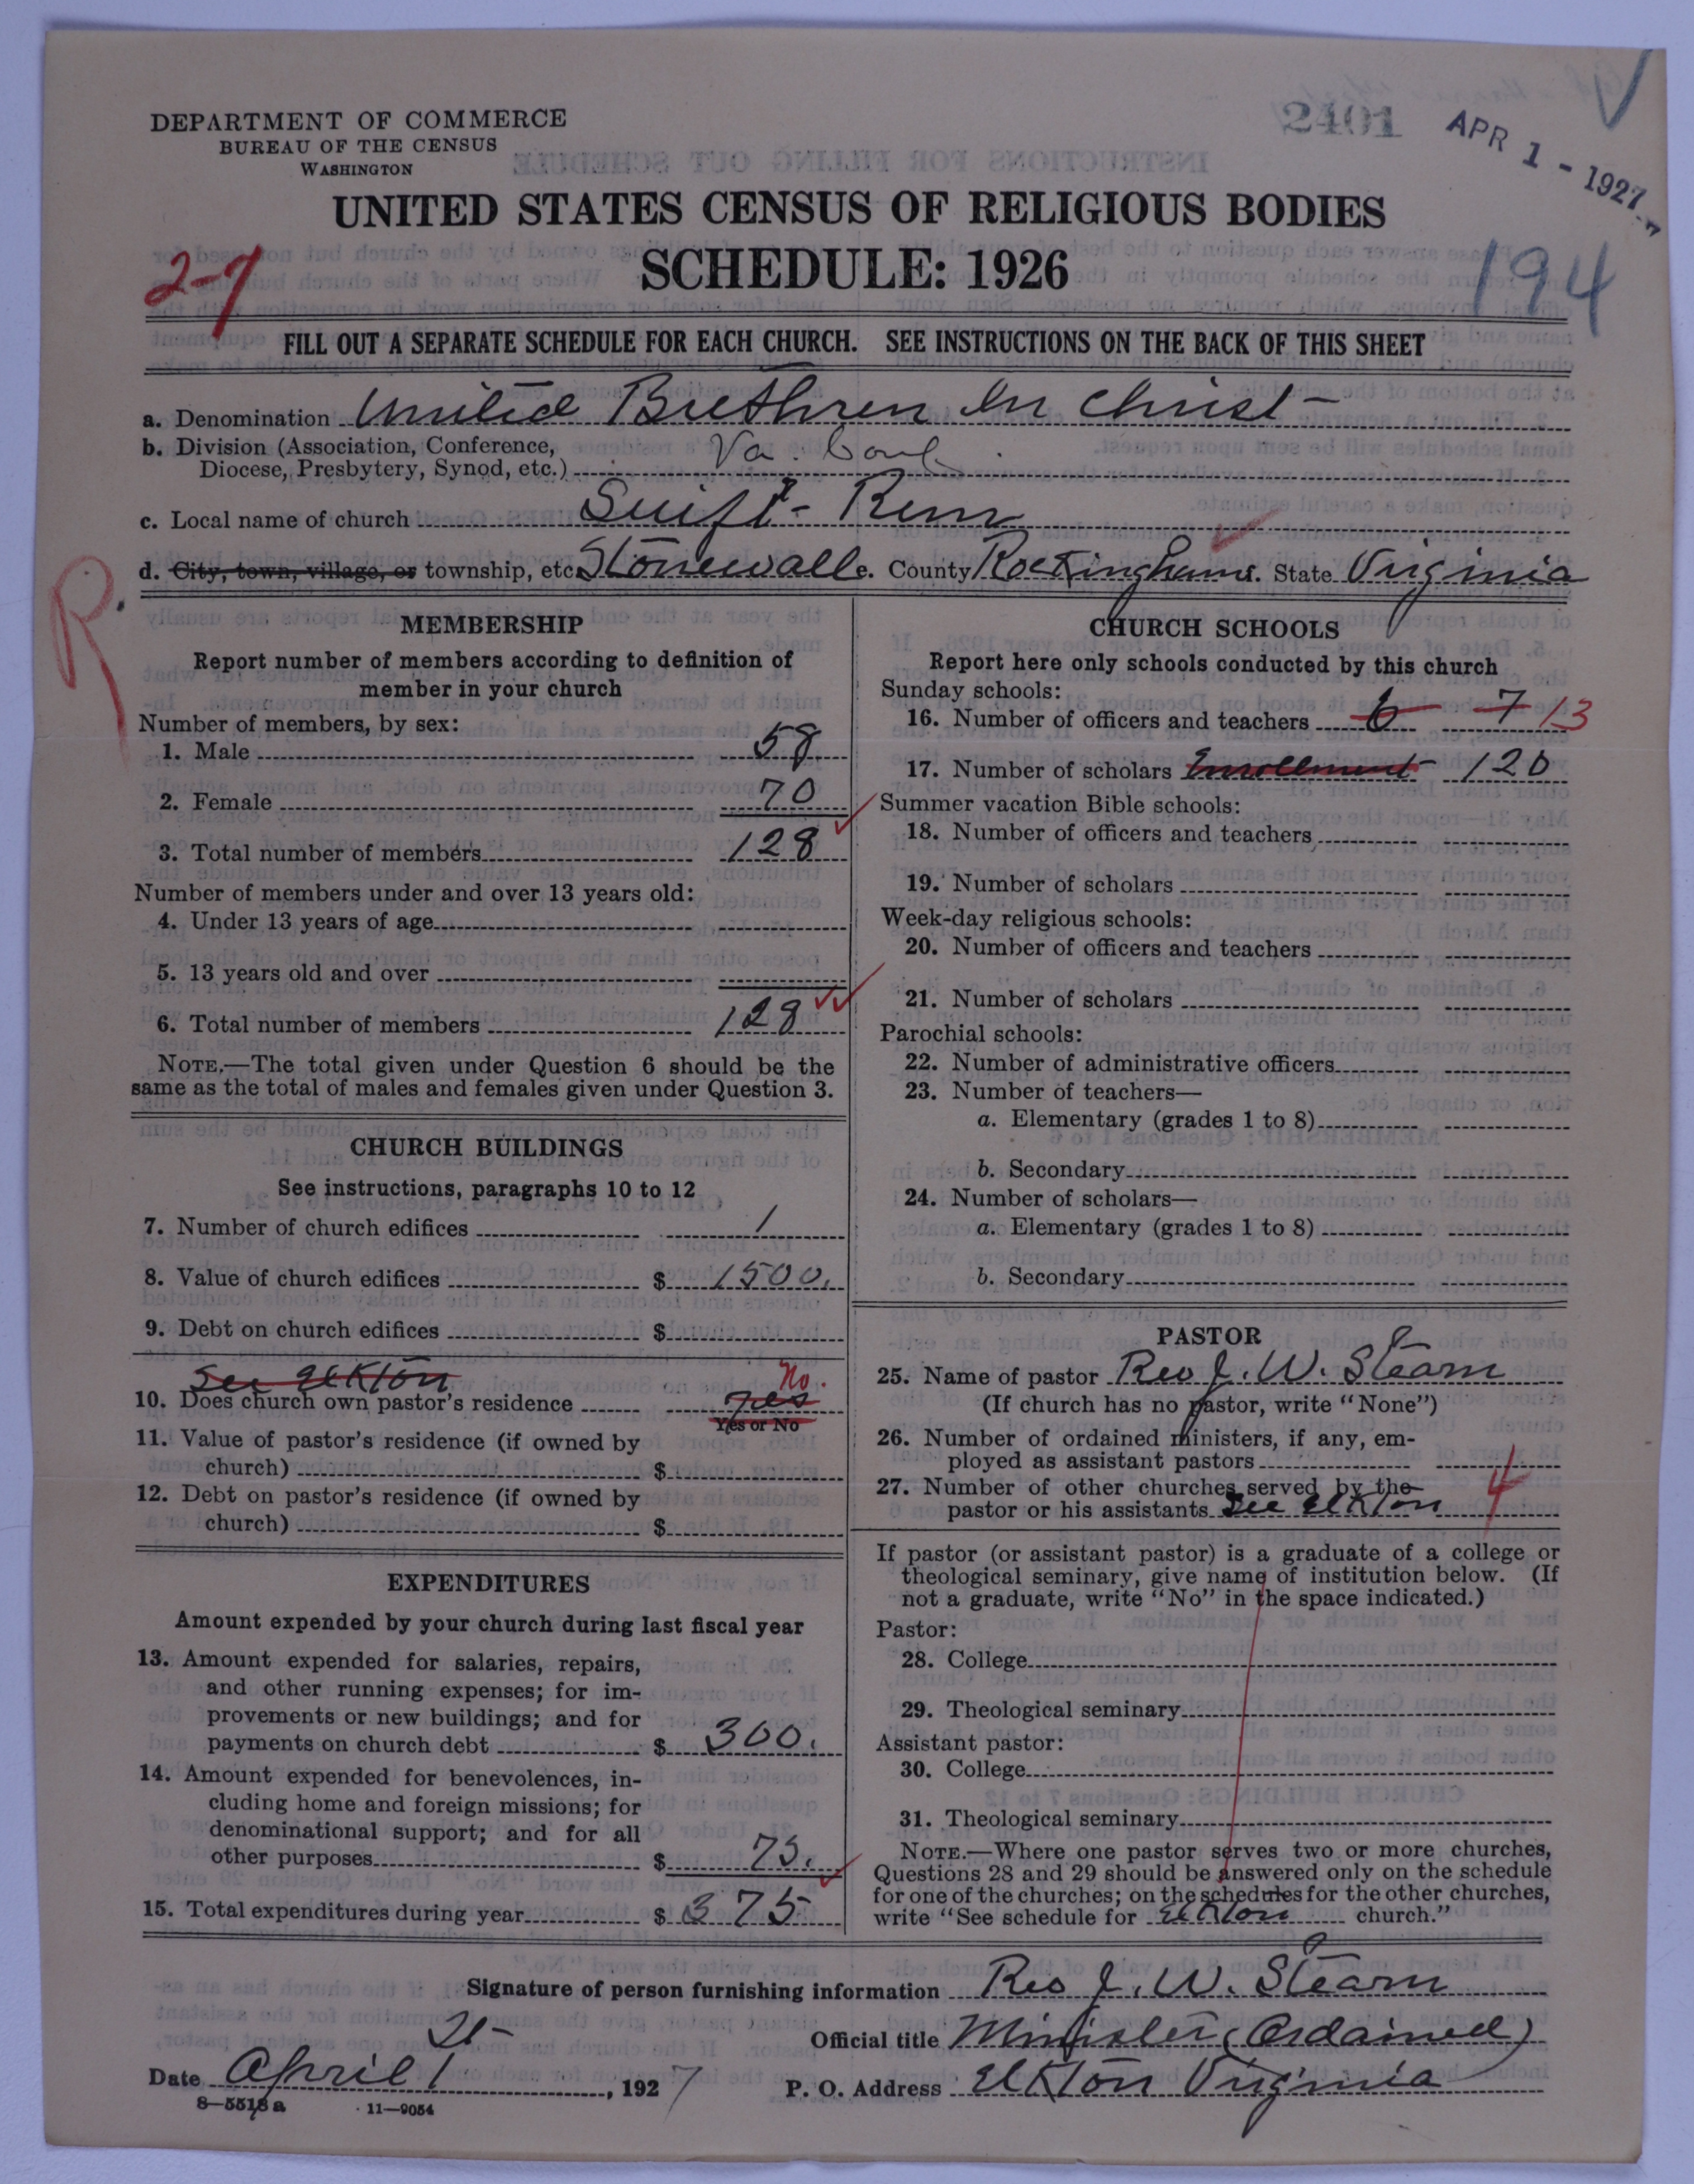 DEPARTMENT OF COMMERCE
BUREAU OF THE CENSUS
WASHINGTON
2401
APR 1 - 1927
UNITED STATES CENSUS OF RELIGIOUS BODIES
SCHEDULE: 1926
2-7
194
FILL OUT A SEPARATE SCHEDULE FOR EACH CHURCH. SEE INSTRUCTIONS ON THE BACK OF THIS SHEET
a. Denomination United Brethren In Christ
b. Division (Association, Conference,
Diocese, Presbytery, Synod, etc.) Va. Conf.
c. Local name of church Swift-Run
d. City, town, village, or township, etc. Stonewall e. County Rockingham f. State Virginia
R.
MEMBERSHIP
Report number of members according to definition of
member in your church
Number of members, by sex:
1. Male 58
2. Female 70
3. Total number of members 128
Number of members under and over 13 years old:
4. Under 13 years of age
5. 13 years old and over
6. Total number of members 128
NOTE.—The total given under Question 6 should be the
same as the total of males and females given under Question 3.
CHURCH BUILDINGS
See instructions, paragraphs 10 to 12
7. Number of church edifices 1
8. Value of church edifices $ 1500.
9. Debt on church edifices $
See Elkton
10. Does church own pastor's residence yes No.
Yes or No
11. Value of pastor's residence (if owned by
church) $
12. Debt on pastor's residence (if owned by
church) $
EXPENDITURES
Amount expended by your church during last fiscal year
13. Amount expended for salaries, repairs,
and other running expenses; for im-
provements or new buildings; and for
payments on church debt $ 300.
14. Amount expended for benevolences, in-
cluding home and foreign missions; for
denominational support; and for all
other purposes $ 75.
15. Total expenditures during year $ 375
CHURCH SCHOOLS
Report here only schools conducted by this church
Sunday schools:
16. Number of officers and teachers 6 7 13
17. Number of scholars Enrollment 120
Summer vacation Bible schools:
18. Number of officers and teachers
19. Number of scholars
Week-day religious schools:
20. Number of officers and teachers
21. Number of scholars
Parochial schools:
22. Number of administrative officers
23. Number of teachers—
a. Elementary (grades 1 to 8)
b. Secondary
24. Number of scholars—
a. Elementary (grades 1 to 8)
b. Secondary
PASTOR
25. Name of pastor Rev J. W. Stearn
(If church has no pastor, write "None")
26. Number of ordained ministers, if any, em-
ployed as assistant pastors
27. Number of other churches served by the
pastor or his assistants See Elkton 4
If pastor (or assistant pastor) is a graduate of a college or
theological seminary, give name of institution below. (If
not a graduate, write "No" in the space indicated.)
Pastor:
28. College
29. Theological seminary
Assistant pastor:
30. College
31. Theological seminary
NOTE.—Where one pastor serves two or more churches,
Questions 28 and 29 should be answered only on the schedule
for one of the churches; on the schedules for the other churches,
write "See schedule for Elkton church."
Signature of person furnishing information Rev J. W. Stearn
Official title Minister (Ordained)
Date April 1st, 1927
P. O. Address Elkton Virginia
8—5518 a
11—9054